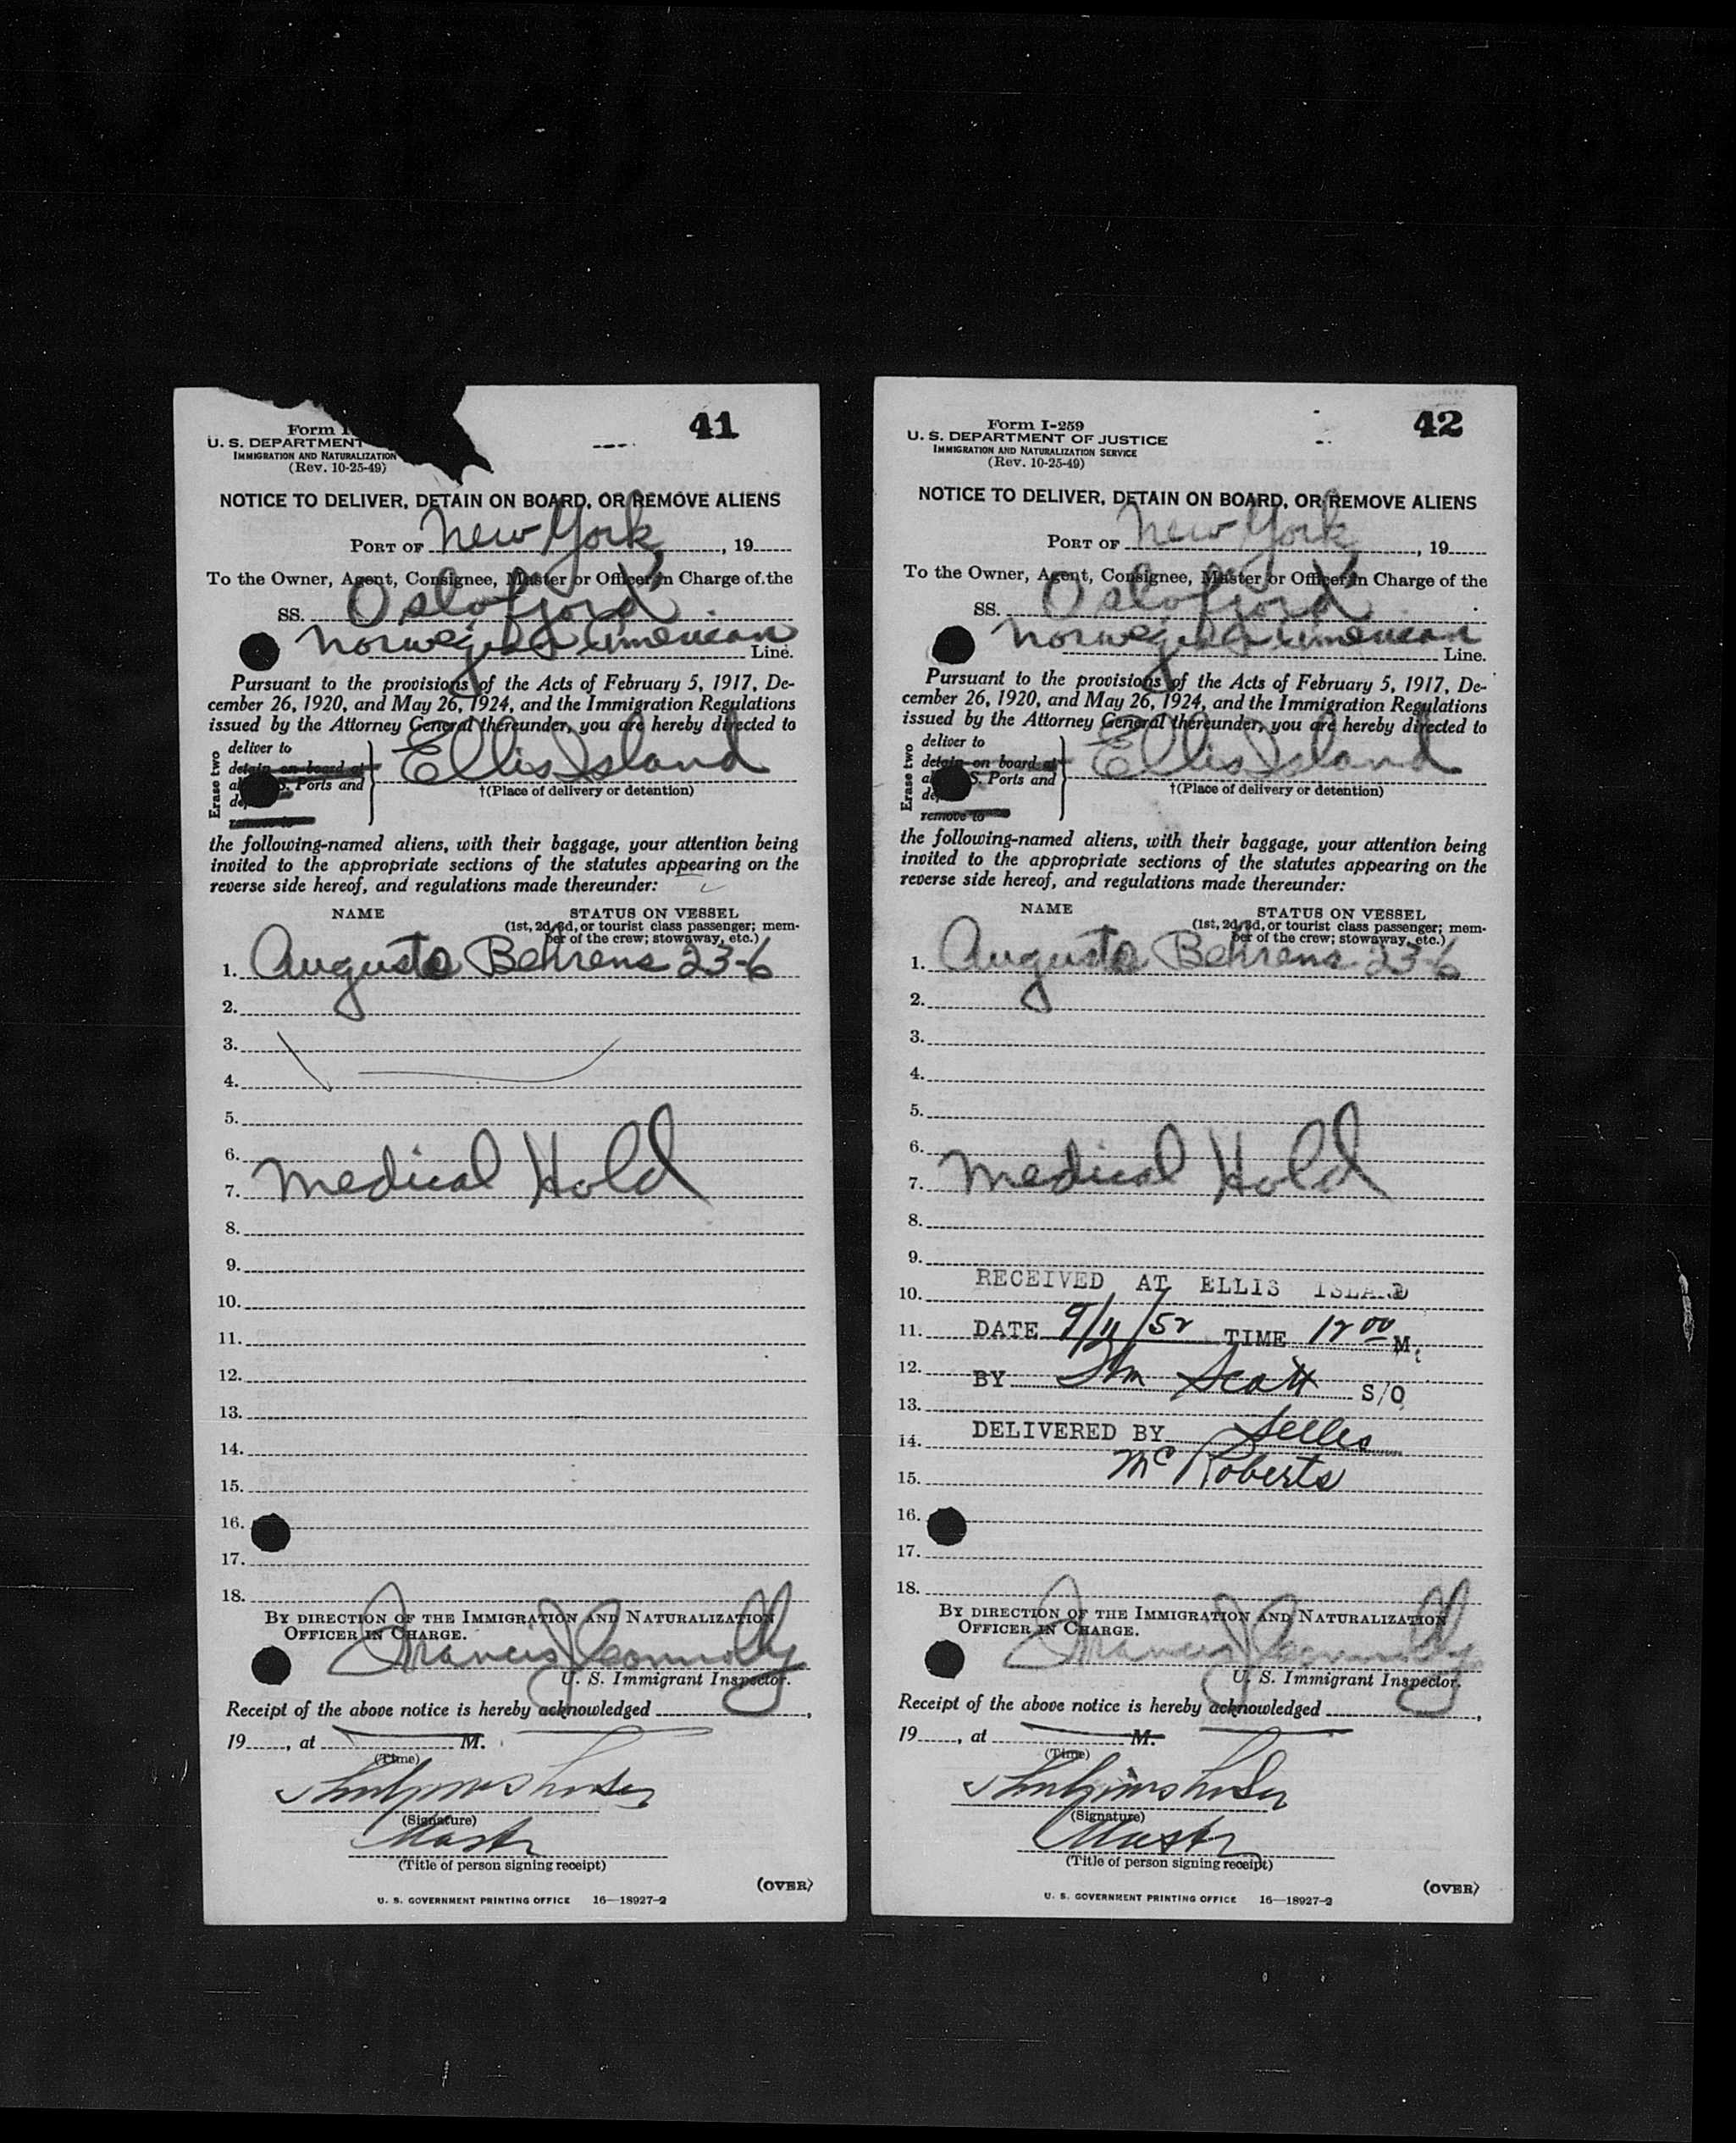 41
Form I
U. S. DEPARTMENT
IMMIGRATION AND NATURALIZATION
(Rev. 10-25-49)
NOTICE TO DELIVER, DETAIN ON BOARD, OR REMOVE ALIENS
PORT OF New York, 19
To the Owner, Agent, Consignee, Master or Officer in Charge of the
SS. Oslofjord
Norwegian American Line.
Pursuant to the provisions of the Acts of February 5, 1917, De-
cember 26, 1920, and May 26, 1924, and the Immigration Regulations
issued by the Attorney General thereunder, you are hereby directed to
Erase two
deliver to
detain on board at
S. Ports and
remove to
Ellis Island
†(Place of delivery or detention)
the following-named aliens, with their baggage, your attention being
invited to the appropriate sections of the statutes appearing on the
reverse side hereof, and regulations made thereunder:
NAME STATUS ON VESSEL
(1st, 2d, 3d, or tourist class passenger; mem-
ber of the crew; stowaway, etc.)
1. Augusta Behrens 23-6
2.
3.
4.
5.
6.
7. Medical Hold
8.
9.
10.
11.
12.
13.
14.
15.
16.
17.
18.
BY DIRECTION OF THE IMMIGRATION AND NATURALIZATION
OFFICER IN CHARGE.
Francis J Connolly
U. S. Immigrant Inspector.
Receipt of the above notice is hereby acknowledged ,
19 , at M.
(Time)
(Signature)
Master
(Title of person signing receipt)
(OVER)
U. S. GOVERNMENT PRINTING OFFICE 16—18927-2
42
Form I-259
U. S. DEPARTMENT OF JUSTICE
IMMIGRATION AND NATURALIZATION SERVICE
(Rev. 10-25-49)
NOTICE TO DELIVER, DETAIN ON BOARD, OR REMOVE ALIENS
PORT OF New York, 19
To the Owner, Agent, Consignee, Master or Officer in Charge of the
SS. Oslofjord
Norwegian American Line.
Pursuant to the provisions of the Acts of February 5, 1917, De-
cember 26, 1920, and May 26, 1924, and the Immigration Regulations
issued by the Attorney General thereunder, you are hereby directed to
Erase two
deliver to
detain on board at
S. Ports and
remove to
Ellis Island
†(Place of delivery or detention)
the following-named aliens, with their baggage, your attention being
invited to the appropriate sections of the statutes appearing on the
reverse side hereof, and regulations made thereunder:
NAME STATUS ON VESSEL
(1st, 2d, 3d, or tourist class passenger; mem-
ber of the crew; stowaway, etc.)
1. Augusta Behrens 23-6
2.
3.
4.
5.
6.
7. Medical Hold
8.
9.
RECEIVED AT ELLIS ISLAND
10.
11. DATE 9/11/52 TIME 12 00 M.
12.
BY Wm Scott S/O
13.
DELIVERED BY Selles
14.
McRoberts
15.
16.
17.
18.
BY DIRECTION OF THE IMMIGRATION AND NATURALIZATION
OFFICER IN CHARGE.
Francis J Connolly
U. S. Immigrant Inspector.
Receipt of the above notice is hereby acknowledged ,
19 , at M.
(Time)
(Signature)
Master
(Title of person signing receipt)
(OVER)
U. S. GOVERNMENT PRINTING OFFICE 16—18927-2